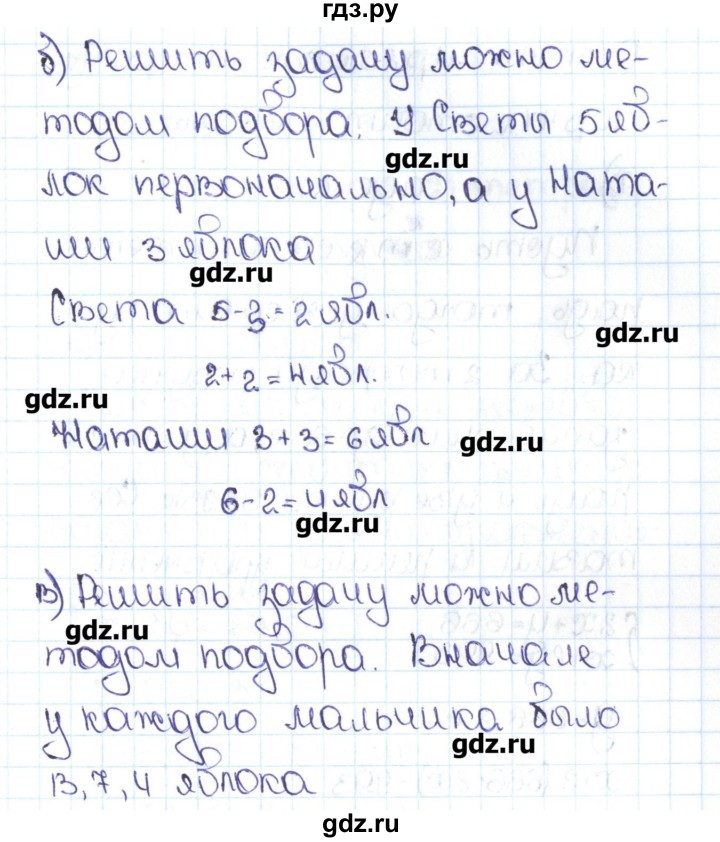 гдз.ру
б) Решить задачу можно ме-
тодом подбора. У Светы 5 яб-
gdz.ru
лок первоначально, а у Ната-
ши 3 яблока
gdz.ru
Света 5-3=2 ябл.
gdz.ru
2+2=4 ябл.
gdz.ru
Наташи 3+3=6 ябл
gdz.ru
6-2=4 ябл
gdz.ru
в) Решить задачу можно ме-
gdz.ru
тодом подбора. Вначале
у каждого мальчика было
gdz.ru
13, 7, 4 яблока
gdz.ru